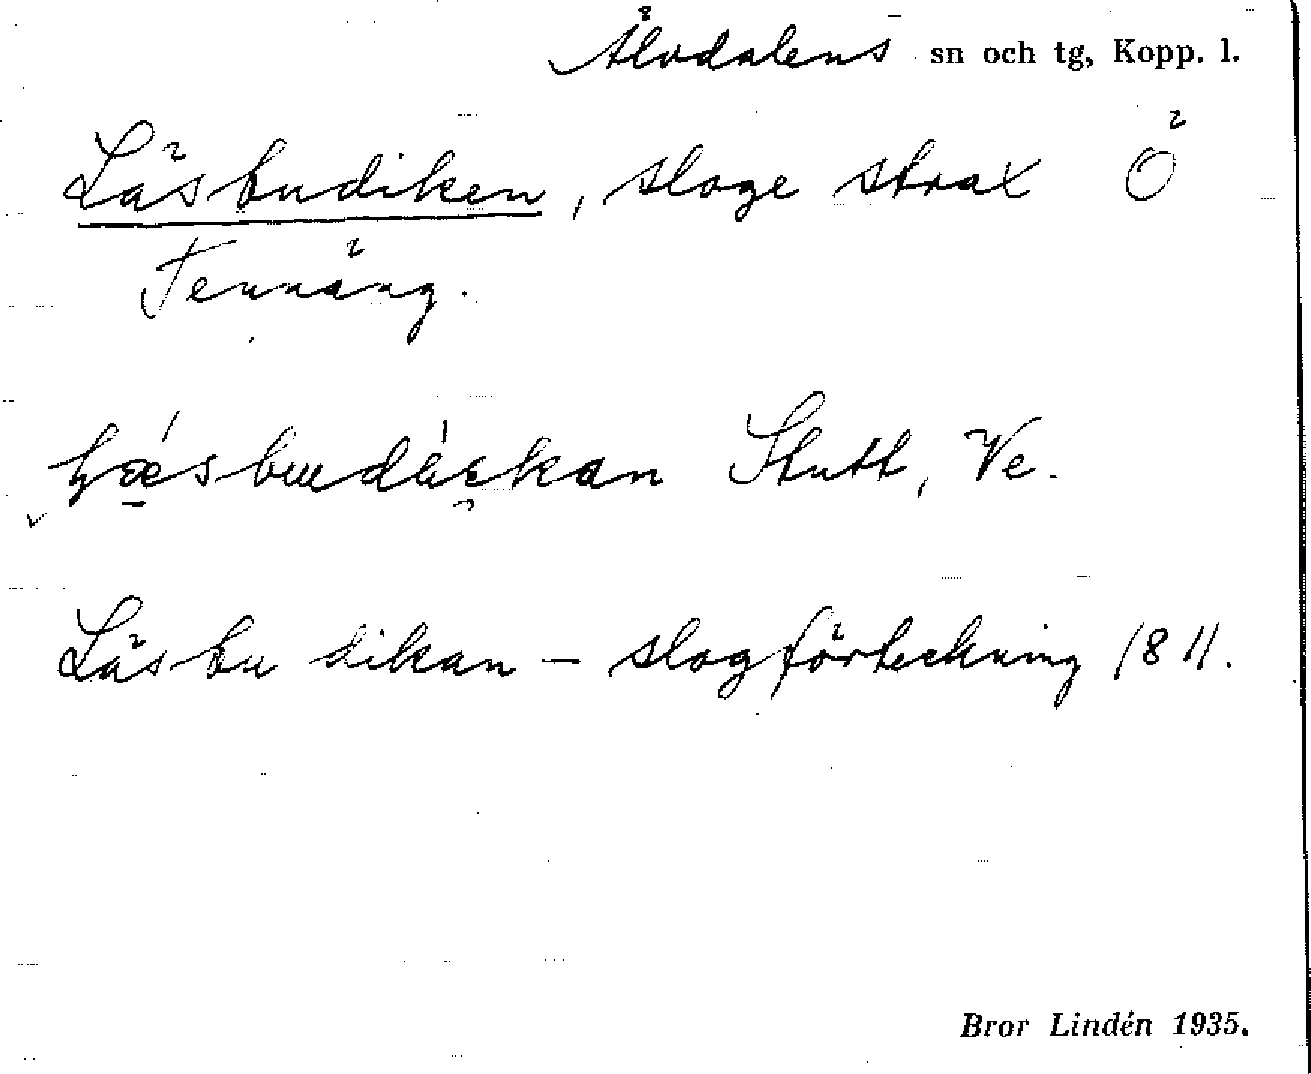 Älvdalens sn och tg, Kopp. l.
Läsbudiken, sloge strax Ö
Tennäng.
Stutt, Ve.
Läsbu dikan – slogförteckning 1811.
Bror Lindén 1935.